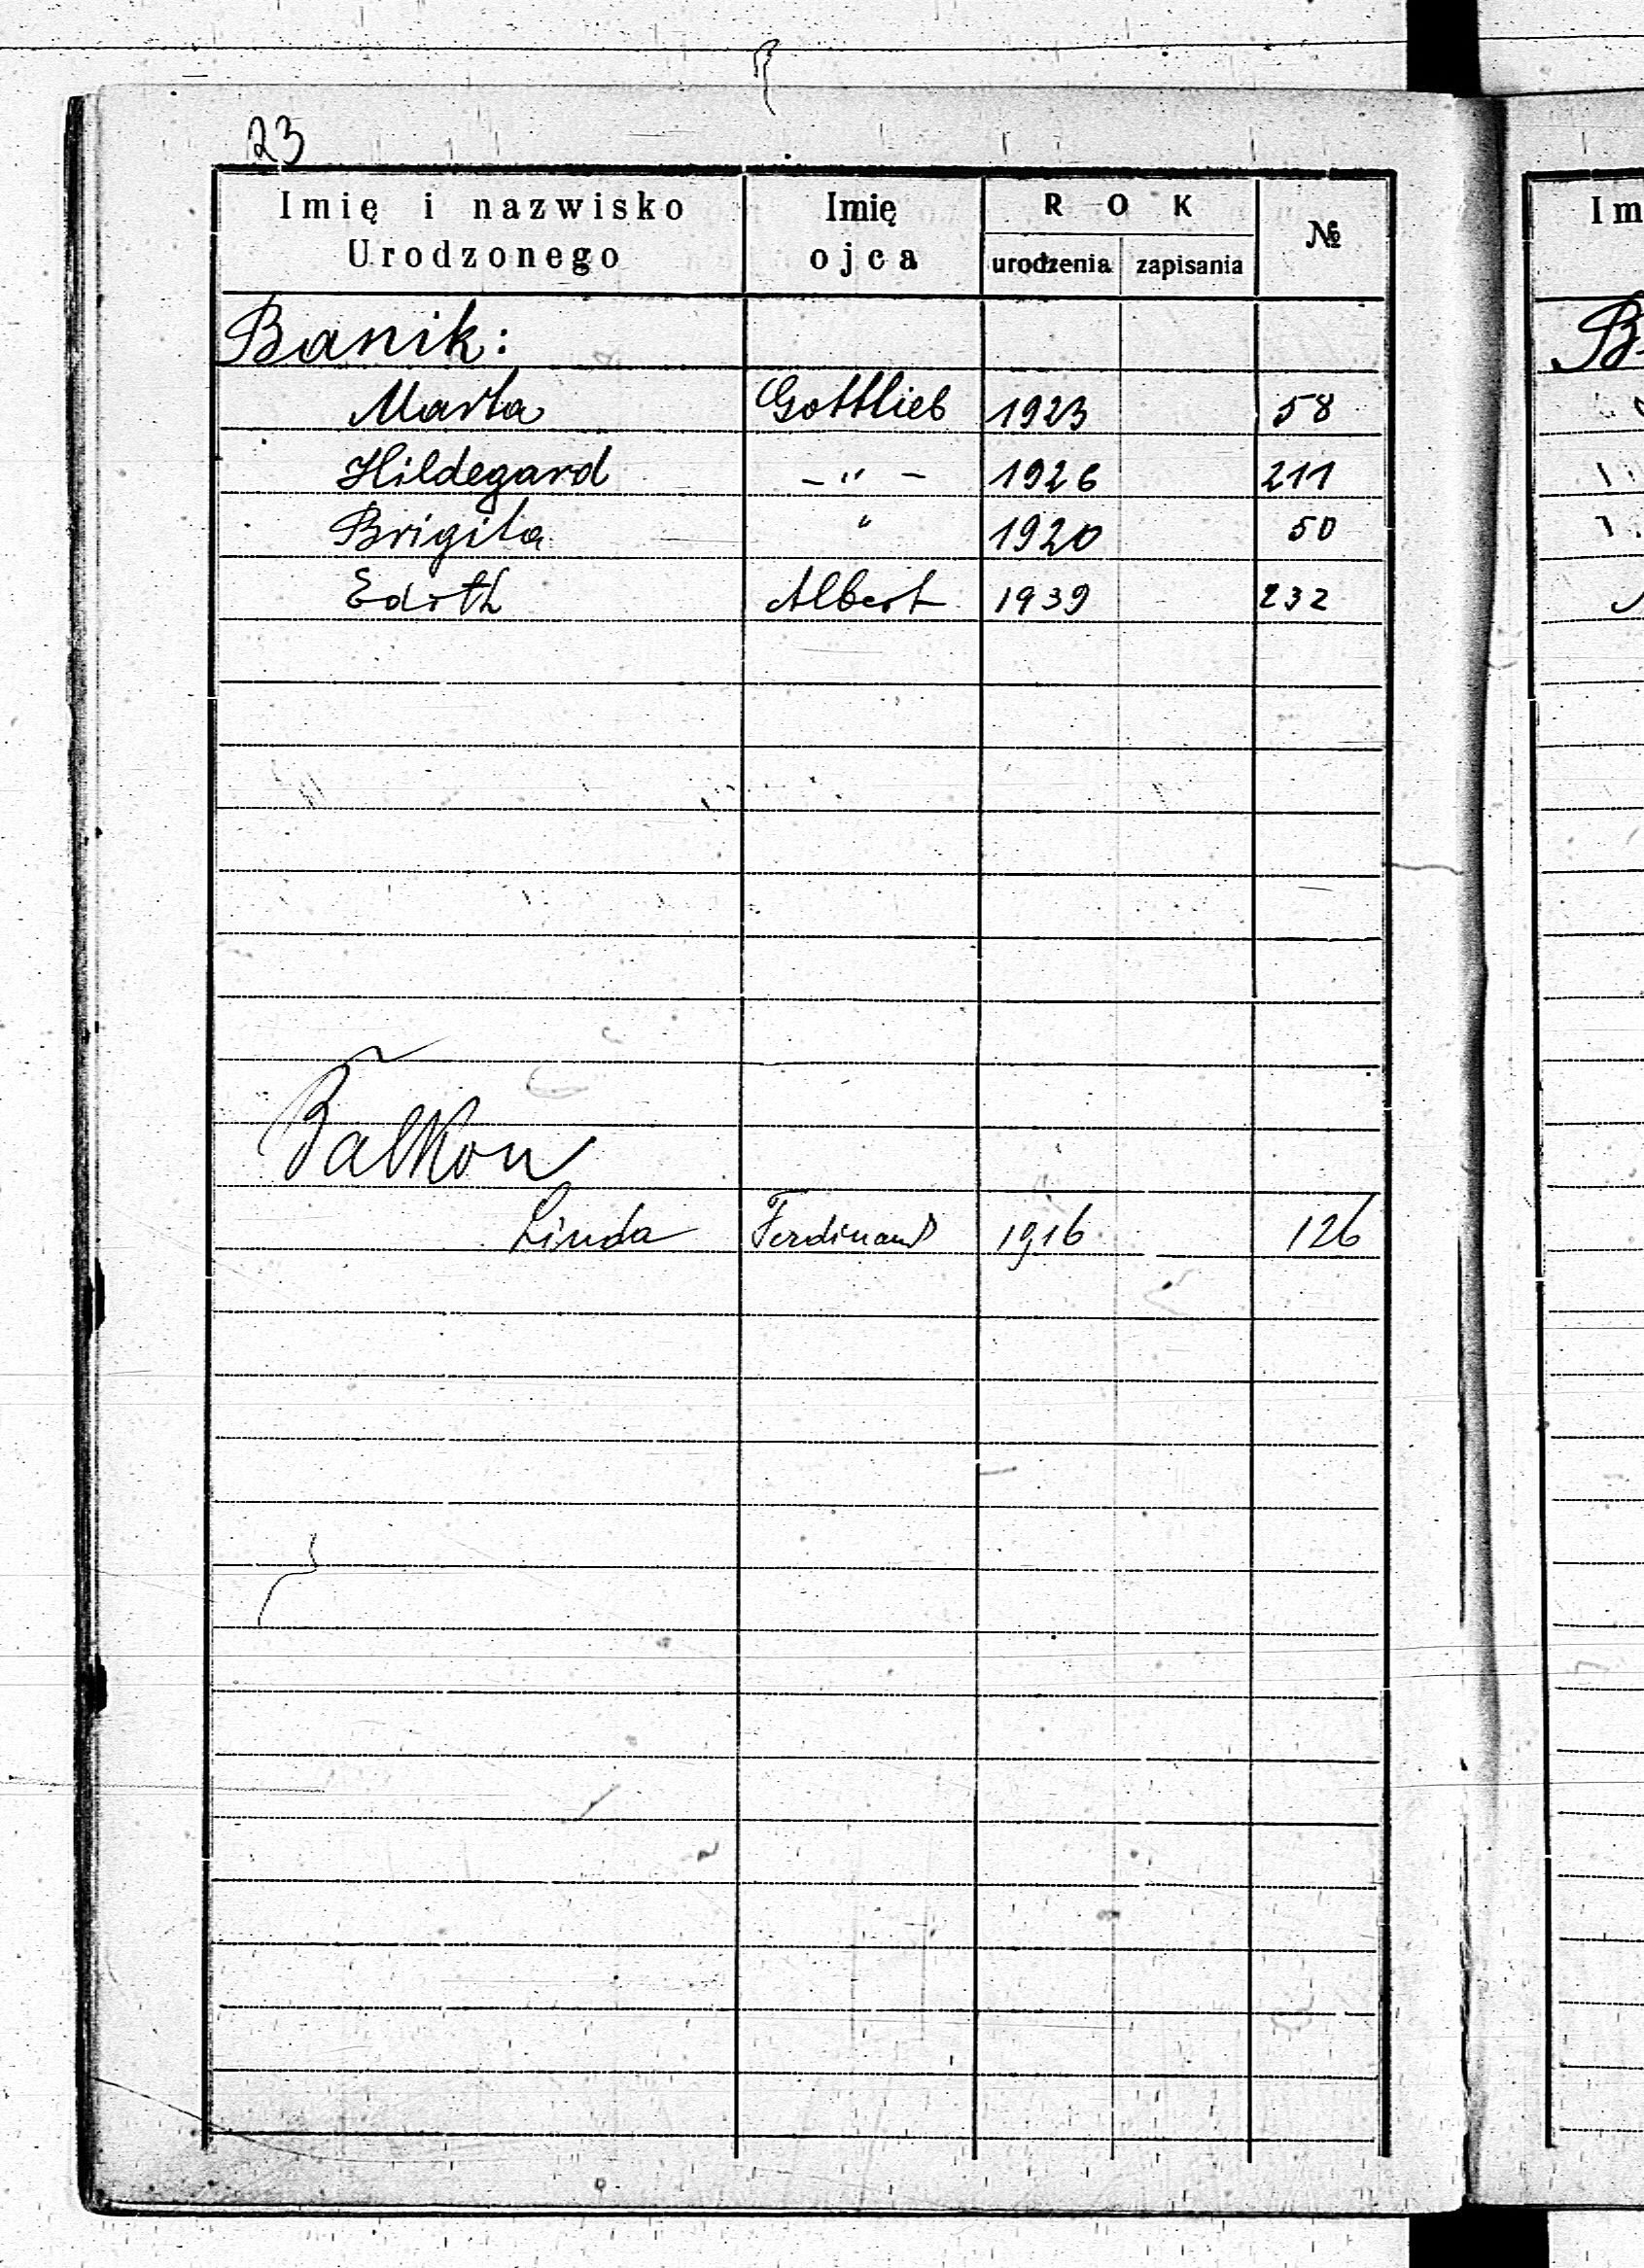 23
Imię i nazwisko Urodzonego Imię ojca ROK urodzenia zapisania №
Banik:
Marta Gottlieb 1923 58
Hildegard – " – 1926 211
Brigita " 1920 50
Edith Albert 1939 232
Balkon
Linda Ferdinand 1916 126
Im
B